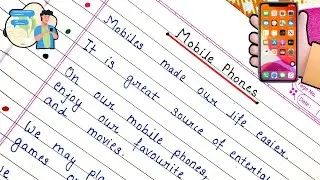 Mobile Phones
Mobiles made our life easier.
It is great source of
On our mobile phones,
enjoy our favourite
and movies.
We may
games